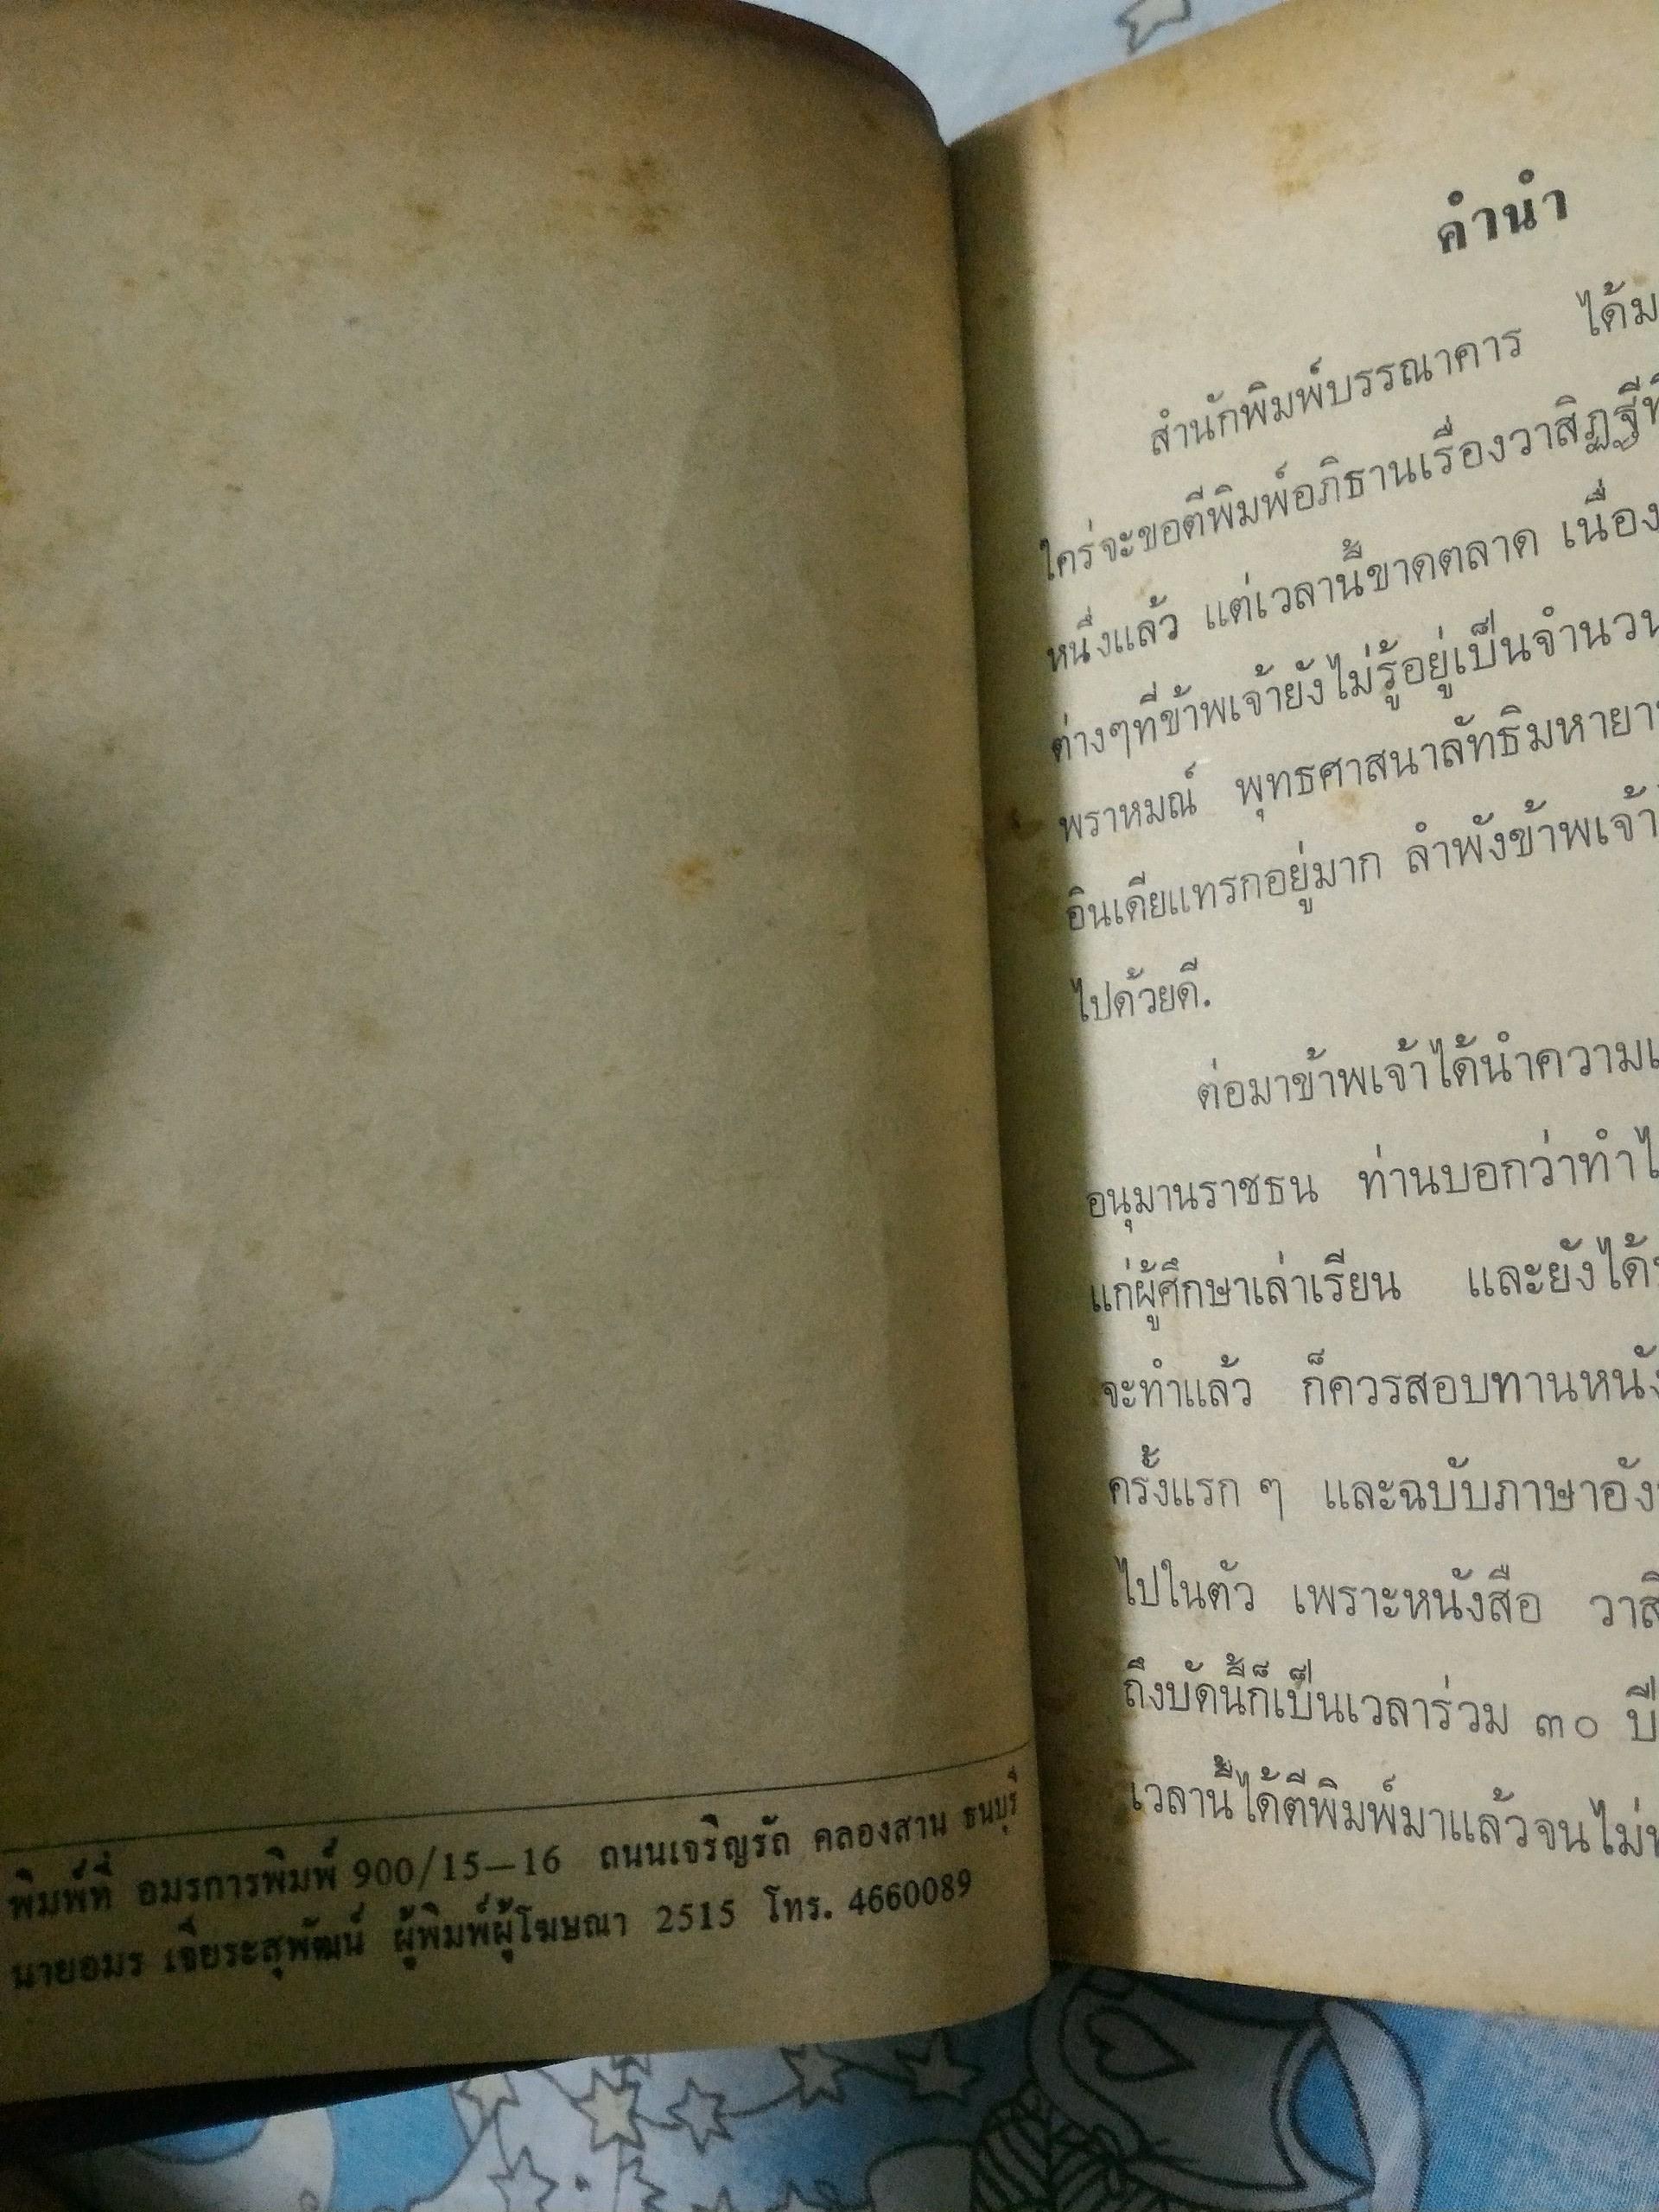 พิมพ์ที่ อมรการพิมพ์ 900/15—16 ถนนเจริญรัถ คลองสาน ธนบุรี
นายอมร เจียระสุพัฒน์ ผู้พิมพ์ผู้โฆษณา 2515 โทร. 4660089
คำนำ
สำนักพิมพ์บรรณาคาร ได้ม
ใคร่จะขอตีพิมพ์อภิธานเรื่องวาสิฏฐี
หนึ่งแล้ว แต่เวลานี้ขาดตลาด เนื่อง
ต่างๆที่ข้าพเจ้ายังไม่รู้อยู่เป็นจำนวน
พราหมณ์ พุทธศาสนาลัทธิมหายา
อินเดียแทรกอยู่มาก ลำพังข้าพเจ้า
ไปด้วยดี.
ต่อมาข้าพเจ้าได้นำความ
อนุมานราชธน ท่านบอกว่าทำ
แก่ผู้ศึกษาเล่าเรียน และยังได้
จะทำแล้ว ก็ควรสอบทานหนัง
ครั้งแรก ๆ และฉบับภาษาอัง
ไปในตัว เพราะหนังสือ วาสิ
ถึงบัดนี้ก็เป็นเวลาร่วม ๓๐ ปี
เวลานี้ได้ตีพิมพ์มาแล้วจนไม่